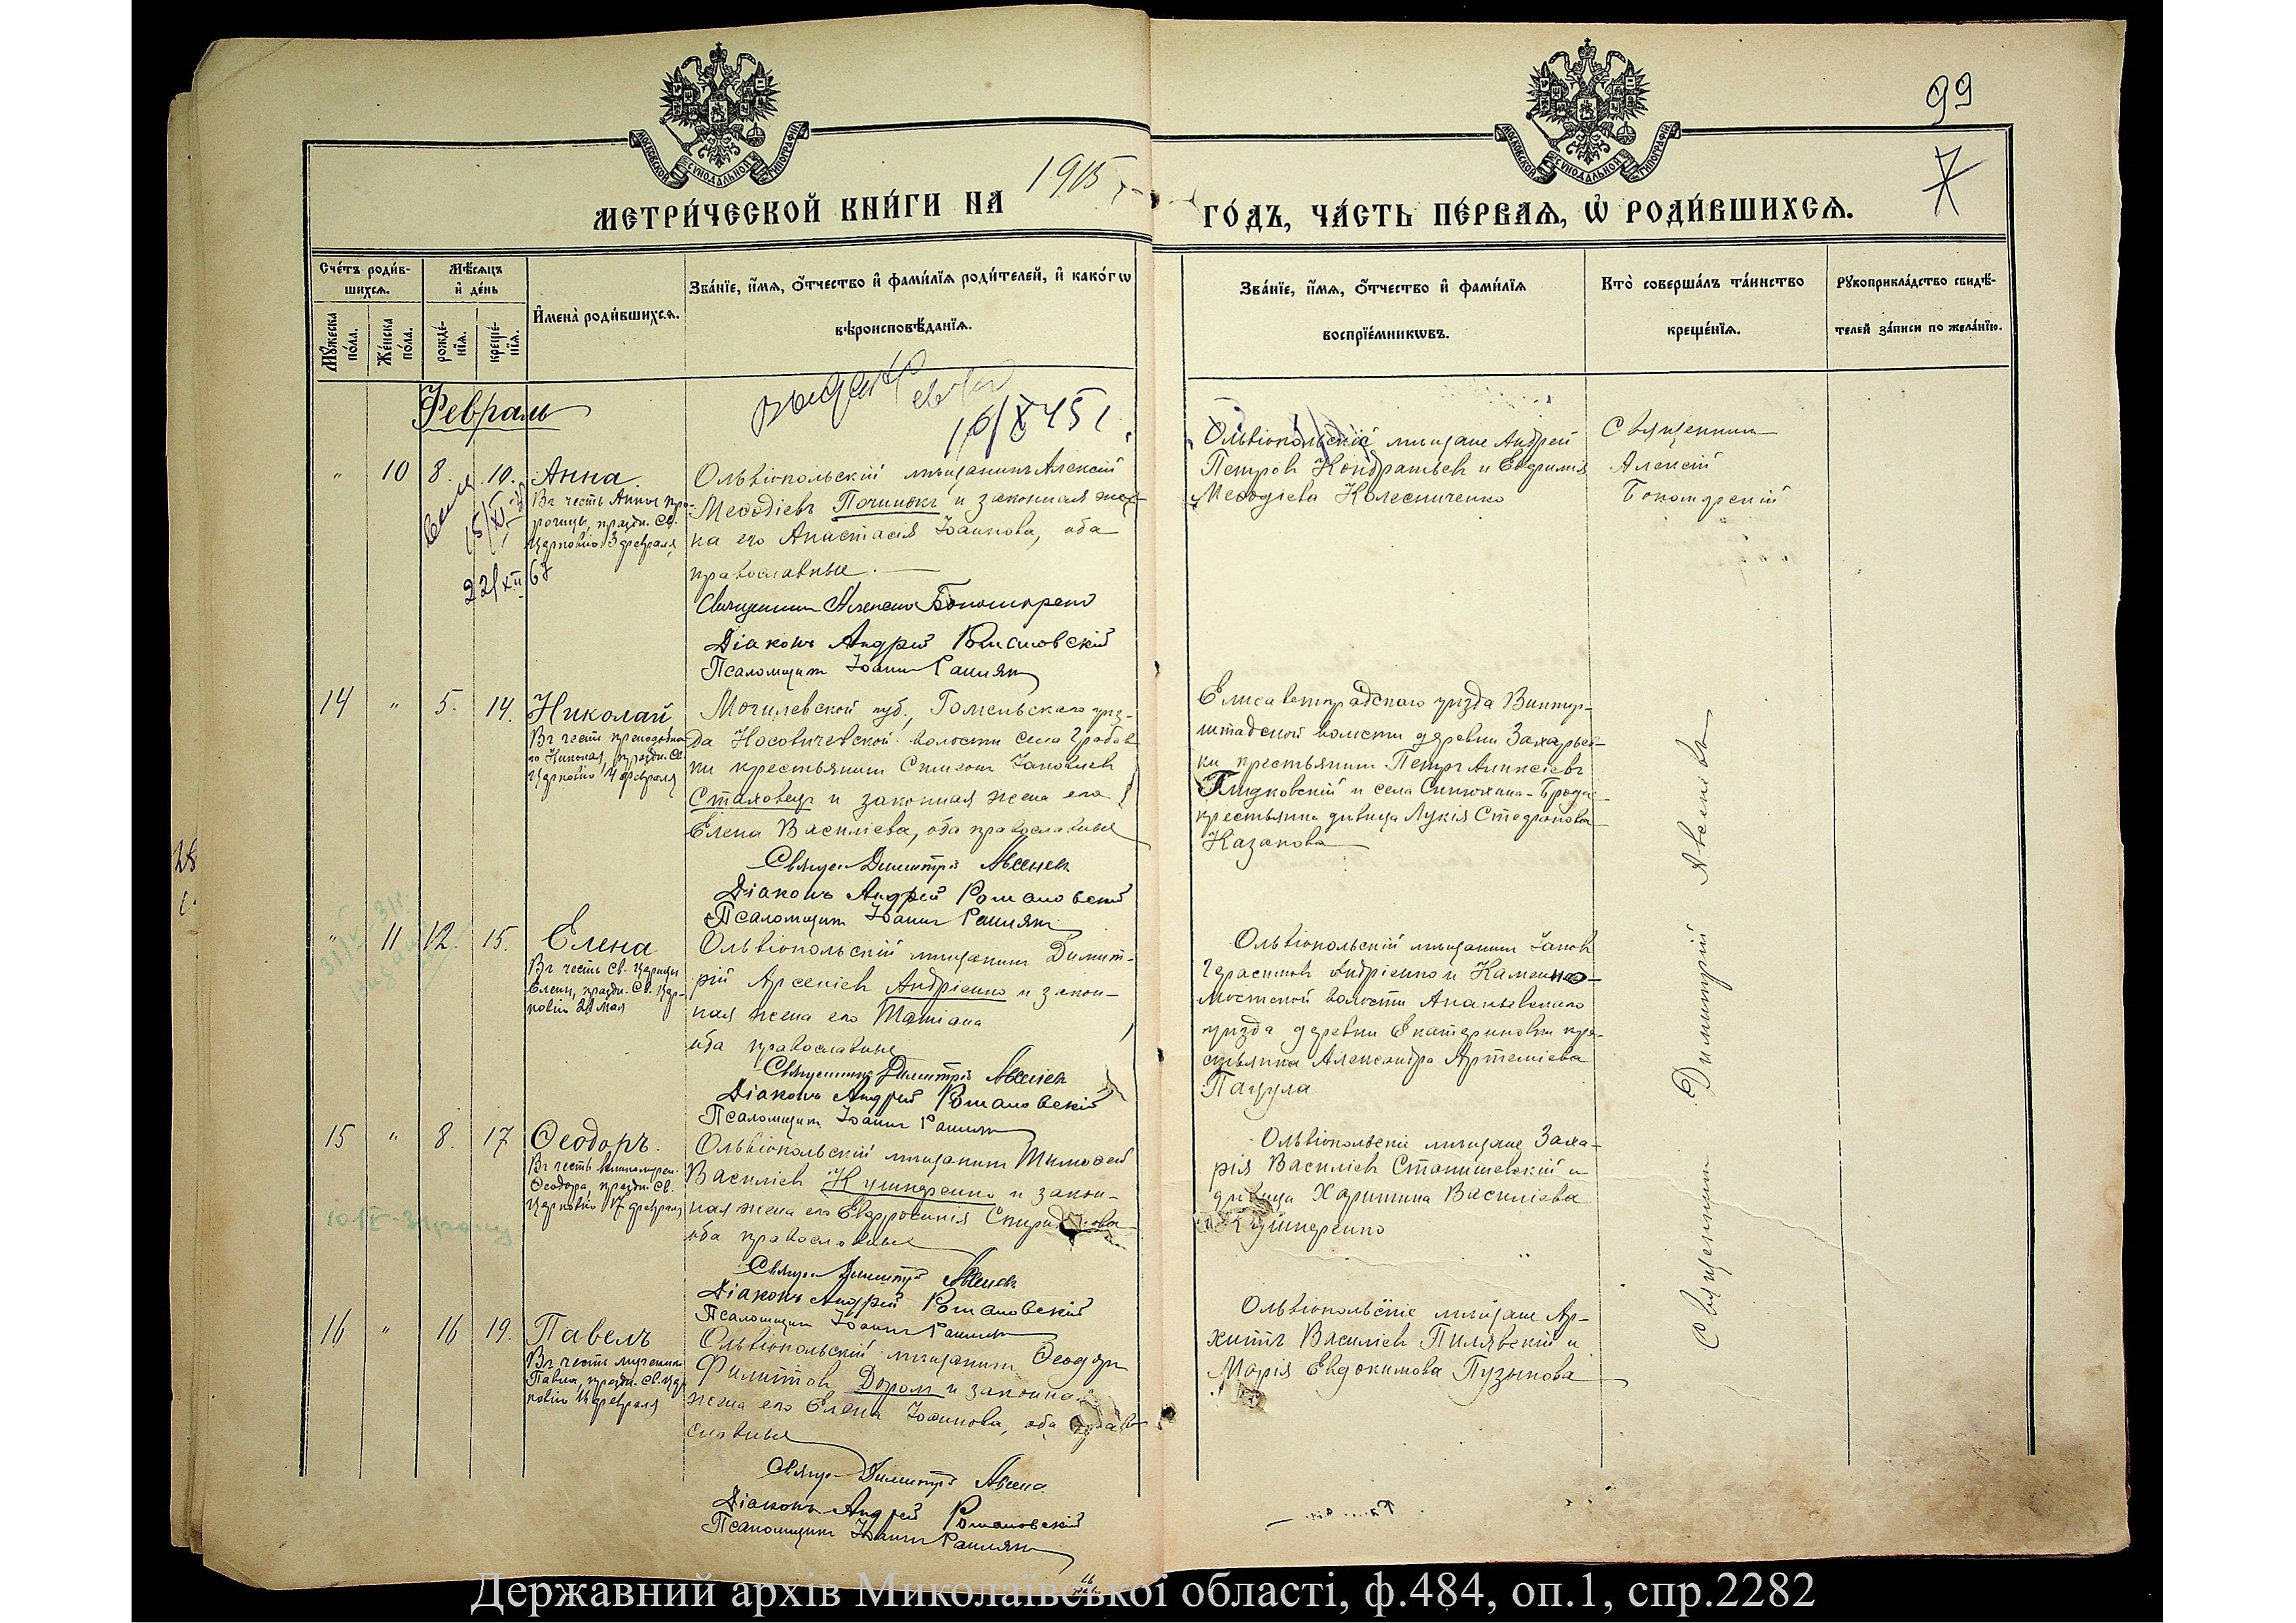 99
7
МОСКОВСКОЙ СѴНОДАЛЬНОЙ ТИПОГРАФІИ
МОСКОВСКОЙ СѴНОДАЛЬНОЙ ТИПОГРАФІИ
МЕТРИ́ЧЕСКОЙ КНИ́ГИ НА 1915 ГО́ДЪ, ЧА́СТЬ ПЕ́РВАѦ, Ѡ҆ РОДИ́ВШИХСѦ.
Сче́тъ роди́в-
шихсѧ.
Мꙋ́жеска
по́ла.
Же́нска
по́ла.
Мѣ́сѧцъ
и҆ де́нь
рожде́-
нїѧ.
креще́-
нїѧ.
И҆мена̀ роди́вшихсѧ.
Зва́нїе, и҆́мѧ, о҆́тчество и҆ фами́лїѧ роди́телей, и҆ како́гѡ
вѣроисповѣ́данїѧ.
Зва́нїе, и҆́мѧ, о҆́тчество и҆ фами́лїѧ
воспрїе́мникѡвъ.
Кто̀ соверша́лъ та́инство
креще́нїѧ.
Рꙋкоприкла́дство свидѣ́-
телей за́писи по жела́нїю.
Февраль
16/X 451
" 10 8. 10. Анна.
Въ честь Анны про-
рочицы, праздн. Св.
Церковію 3 февраля
15/XI
22/XII 67
Ольвіопольскій мѣщанинъ Алексій
Меѳодіевъ Починокъ и законная же-
на его Анастасія Іоаннова, оба
православные.
Священникъ Алексій
Діаконъ Андрей Романовскій
Псаломщикъ Іоаннъ
Ольвіопольскіе мѣщане Андрей
Петровъ Кондратьевъ и Евфимія
Меѳодіева Колесниченко
Священникъ
Алексій
14 " 5. 14. Николай
Въ честь преподобна-
го Николая, праздн. Св.
Церковію 4 февраля
Могилевской губ., Гомельскаго уѣз-
да Носовичевской волости села Грабов-
ки крестьянинъ Іаковлевъ
Стаховецъ и законная жена его
Елена Василіева, оба православные
Свящ. Димитрій
Діаконъ Андрей Романовскій
Псаломщикъ Іоаннъ
Елисаветградскаго уѣзда Виттер-
штадской волости деревни Захарьев-
ки крестьянинъ Петръ Алексіевъ
и села Синюхина-Брода
крестьянка дѣвица Лукія Стефанова
Казакова
" 11 12. 15. Елена
Въ честь Св. Царицы
Елены, праздн. Св. Цер-
ковію 21 Мая
Ольвіопольскій мѣщанинъ Димит-
рій Арсеніевъ Андріенко и закон-
ная жена его Татіана
оба православные
Священникъ Димитрій
Діаконъ Андрей Романовскій
Псаломщикъ Іоаннъ
Ольвіопольскій мѣщанинъ Іаковъ
Герасимовъ Андріенко и Каменно-
мостской волости Ананьевскаго
уѣзда деревни Екатериновки кре-
стьянка Александра Артеміева
Пацула
15 " 8. 17 Ѳеодоръ.
Въ честь великомучен.
Ѳеодора, праздн. Св.
Церковію 17 февраля
Ольвіопольскій мѣщанинъ Тимоѳей
Василіевъ Кушнеренко и закон-
ная жена его Евфросинія
оба православные
Свящ. Димитрій
Діаконъ Андрей Романовскій
Псаломщикъ Іоаннъ
Ольвіопольскіе мѣщане Заха-
рія Василіевъ Станишевскій и
дѣвица Харитина Василіева
Кушнеренко
16 " 16 19. Павелъ
Въ честь мученика
Павла, праздн. Св. Цер-
ковію 16 февраля
Ольвіопольскій мѣщанинъ Ѳеодоръ
Филипповъ и законная
жена его Елена Іоаннова, оба право-
славные
Свящ. Димитрій
Діаконъ Андрей Романовскій
Псаломщикъ Іоаннъ
Ольвіопольскіе мѣщане Ар-
хиппъ Василіевъ Пилявскій и
Марія Евдокимова Пузынова
Священникъ Димитрій
Державний архів Миколаївської області, ф.484, оп.1, спр.2282